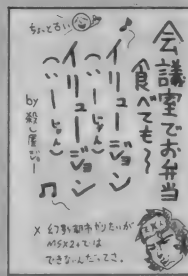 ちょっと古い
会議室でお弁当
食べても〜
イリュージョン
(いーじょん)
イリュージョン
(いーじょん)
by 殺し屋ジョー
× 幻影都市やりたいが
MSX2+では
できないんだってさ。